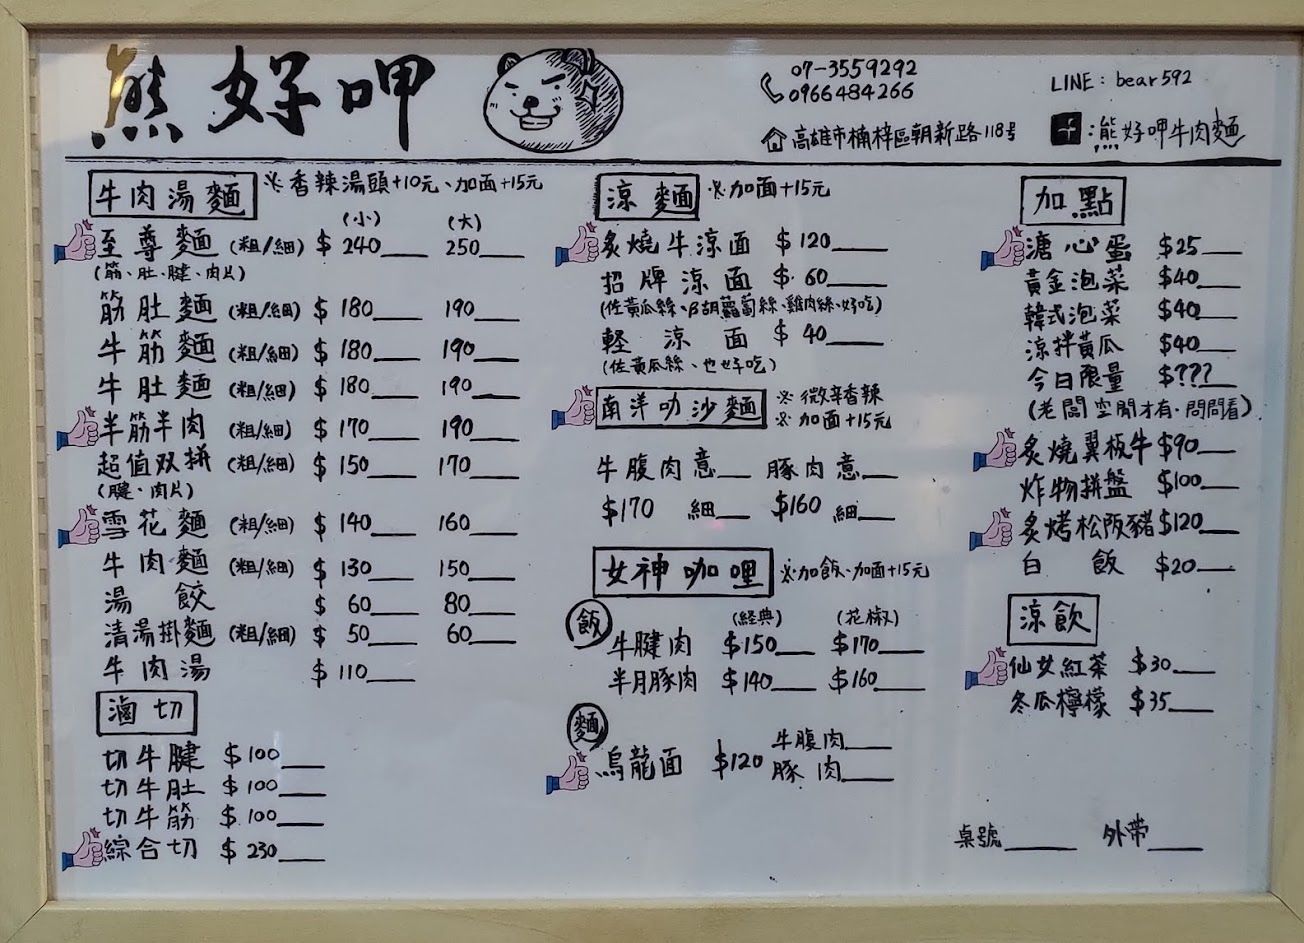 熊好呷
07-3559292
0966484266
高雄市楠梓區朝新路118号
LINE: bear592
熊好呷牛肉麵
牛肉湯麵 ※香辣湯頭+10元、加面+15元
(小) (大)
至尊麵 (粗/細) $ 240____ 250____
(筋、肚、腱、肉片)
筋肚麵 (粗/細) $ 180____ 190____
牛筋麵 (粗/細) $ 180____ 190____
牛肚麵 (粗/細) $ 180____ 190____
半筋半肉 (粗/細) $ 170____ 190____
超值双拼 (粗/細) $ 150____ 170____
(腱、肉片)
雪花麵 (粗/細) $ 140____ 160____
牛肉麵 (粗/細) $ 130____ 150____
湯餃 $ 60____ 80____
清湯掛麵 (粗/細) $ 50____ 60____
牛肉湯 $ 110____
滷切
切牛腱 $ 100____
切牛肚 $ 100____
切牛筋 $ 100____
綜合切 $ 230____
涼麵 ※加面+15元
炙燒牛涼面 $ 120____
招牌涼面 $ 60____
(佐黃瓜絲、胡蘿蔔絲、雞肉絲、好吃)
軽涼面 $ 40____
(佐黃瓜絲、也好吃)
南洋叻沙麵 ※微辛香辣
※加面+15元
牛腹肉意____ 豚肉意____
$170 細____ $160 細____
女神咖哩 ※加飯、加面+15元
飯 (経典) (花椒)
牛腱肉 $150____ $170____
半月豚肉 $140____ $160____
麵
烏龍面 $120 牛腹肉____
豚肉____
加點
溏心蛋 $25____
黃金泡菜 $40____
韓式泡菜 $40____
涼拌黃瓜 $40____
今日限量 $???____
(老闆空閒才有、問問看)
炙燒翼板牛 $90____
炸物拼盤 $100____
炙烤松阪豬 $120____
白飯 $20____
涼飲
仙女紅茶 $30____
冬瓜檸檬 $35____
桌號____ 外帶____